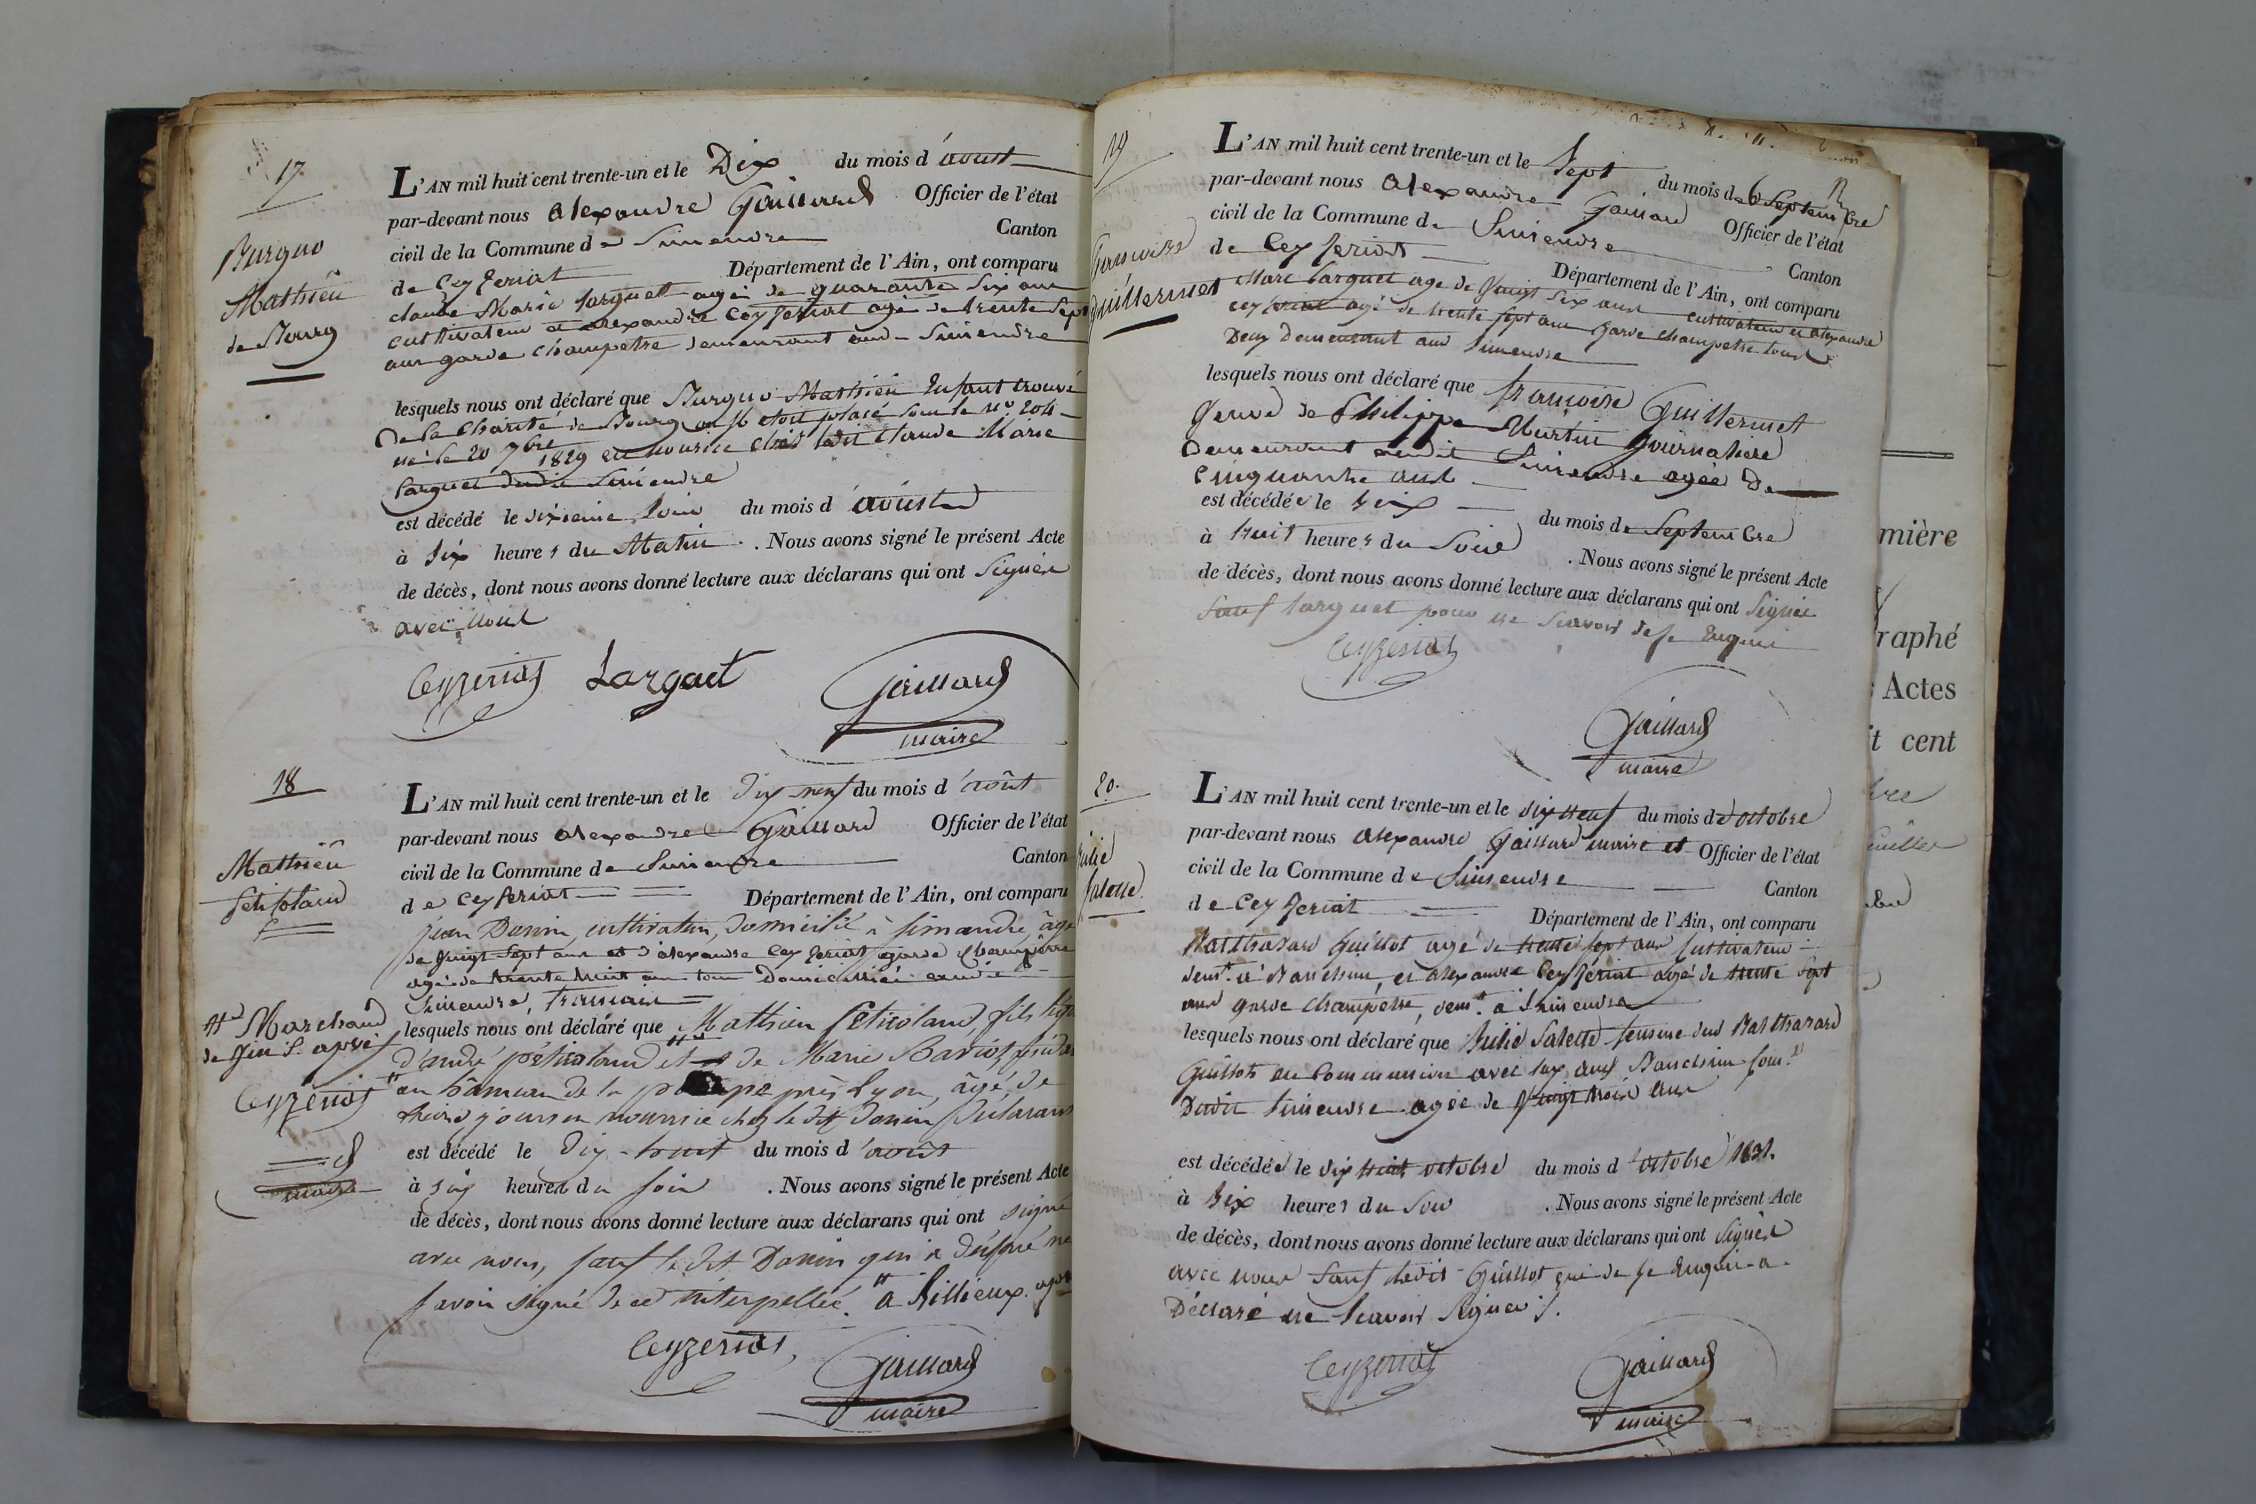 17.
Burguo
Mathieu
de Bourg
L'AN mil huit cent trente-un et le Dix du mois d'aoust
par-devant nous alexandre Gaillard Officier de l'état
civil de la Commune de Simendre Canton
de Ceyzeriat Département de l'Ain, ont comparu
claude Marie Larguet agé de quarante Six ans
cultivateur et alexandre Ceyzeriat agé de trente Sept
ans garde champetre demeurant aud. Simendre
lesquels nous ont déclaré que Burguo Mathieu Enfant trouvé
De la Charité de Bourg où il étoit placé sous le no. 204
né le 20 7bre 1829 en nourice chés ledit Claude Marie
Larguet dudit Simendre
est décédé le dixieme Jour du mois d'aoust
à Six heures du Matin. Nous avons signé le présent Acte
de décès, dont nous avons donné lecture aux déclarans qui ont Signés
avec nous
Ceyzeriat Larguet Gaillard
maire
18
Mathieu
Petitoland
L'AN mil huit cent trente-un et le dix neuf du mois d'août
par-devant nous alexandre Gaillard Officier de l'état
civil de la Commune de Simendre Canton
de Ceyzeriat Département de l'Ain, ont comparu
jean Danin, cultivateur, domicilié à simandre, âgé
de Vingt Sept ans et d'alexandre Ceyzeriat garde champêtre
agé de trente huit ans tous Domiciliés audit
Simendre, francais
Marchand
lesquels nous ont déclaré que Mathieu Petitoland, fils légi
d'andré pétitoland et de Marie Barioz
Ceyzeriat
au hâmeau de la pape près Lyon, âgé de
jours en nourrice chez le dit Danin déclarant
est décédé le dix-huit du mois d'août
maire
à six heures du soir. Nous avons signé le présent Acte
de décès, dont nous avons donné lecture aux déclarans qui ont signé
avec nous, sauf le dit Danin qui a déclaré ne
savoir signé de ce interpellé. a Rillieux.
Ceyzeriat, Gaillard
maire
19
Francoise
Guillermet
L'AN mil huit cent trente-un et le Sept du mois de Septembre
par-devant nous Alexandre Gaillard Officier de l'état
civil de la Commune de Simendre Canton
de Ceyzeriat Département de l'Ain, ont comparu
Marc Larguet age de Vingt Six ans cultivateur et alexandre
Ceyzeriat agé de trente sept ans garde champetre tous
Deux Demeurant aud Simendre
lesquels nous ont déclaré que francoise Guillermet
veuve de Philippe Martin Journaliere
Demeurant audit Simendre agée de
Cinquante ans
est décédée le Six du mois de Septembre
à huit heures du Soir. Nous avons signé le présent Acte
de décès, dont nous avons donné lecture aux déclarans qui ont Signés
Sauf larguet pour ne Scavoir de ce Enquis
Ceyzeriat
Gaillard
maire
20.
Julie
Salette
L'AN mil huit cent trente-un et le dix neuf du mois d'octobre
par-devant nous alexandre Gaillard maire et Officier de l'état
civil de la Commune de Simendre Canton
de Ceyzeriat Département de l'Ain, ont comparu
Balthazard Guillot agé de trente sept ans Cultivateur
demt. à Banchin, et alexandre Ceyzeriat agé de trente Sept
ans garde champetre, demt. a Simendre
lesquels nous ont déclaré que Julie Salette femme dud Balthazard
Guillot
Dudit Simendre agée de Vingt trois ans
est décédée le dix huit octobre du mois d'octobre 1831.
à Six heures du Soir. Nous avons signé le présent Acte
de décès, dont nous avons donné lecture aux déclarans qui ont Signés
avec nous Sauf ledit Guillot qui de ce Enquis a
Déclaré ne Scavoir Signer
Ceyzeriat
Gaillard
maire
mière
raphé
Actes
t cent